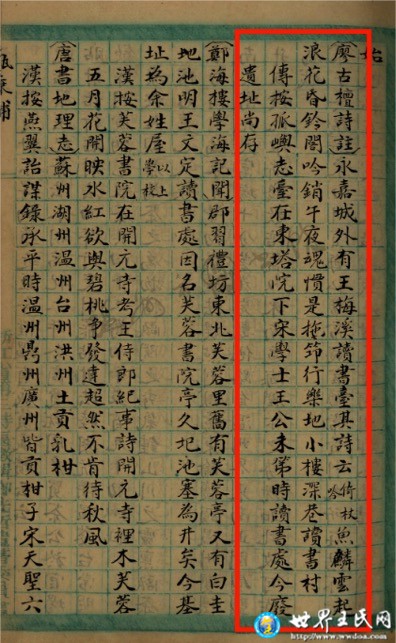 始
廖古檀詩註永嘉城外有王梅溪讀書臺其詩云倚杖魚麟雲起
浪花香鈴閣吟銷午夜魂慣是拖筇行樂地小樓深巷讀書村
傳按孤嶼志臺在東塔院下宋學士王公未第時讀書處今廢
遺址尚存
鄭海樓學海記聞郡習禮坊東北芙蓉里舊有芙蓉亭又有白圭
地池明王文定讀書處因名芙蓉書院亭久圮池塞為井矣今基
址為余姓屋以上學校
漢按芙蓉書院在開元寺考王侍郎紀事詩開元寺裡木芙蓉
五月花開映水紅欲與碧桃爭發達超然不肯待秋風
唐書地理志蘇州湖州温州台州洪州土貢乳柑
漢按燕翼詒謀錄承平時温州鼎州廣州皆貢柑子宋天聖六
甌乘補
世界王氏网
www.wwdoa.com